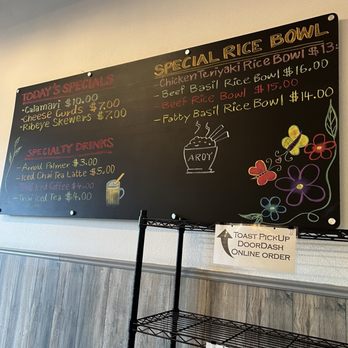 TODAY'S SPECIALS
• Calamari $10.00
• Cheese Curds $7.00
• Ribeye Skewers $7.00
SPECIALTY DRINKS
- Arnold Palmer $3.00
- Iced Chai Tea Latte $5.00
- Thai Iced Coffee $4.00
- Thai Iced Tea $4.00
SPECIAL RICE BOWL
- Chicken Teriyaki Rice Bowl $13.
- Beef Basil Rice Bowl $16.00
- Beef Rice Bowl $15.00
- Patty Basil Rice Bowl $14.00
AROY
TOAST PICKUP
DOORDASH
ONLINE ORDER